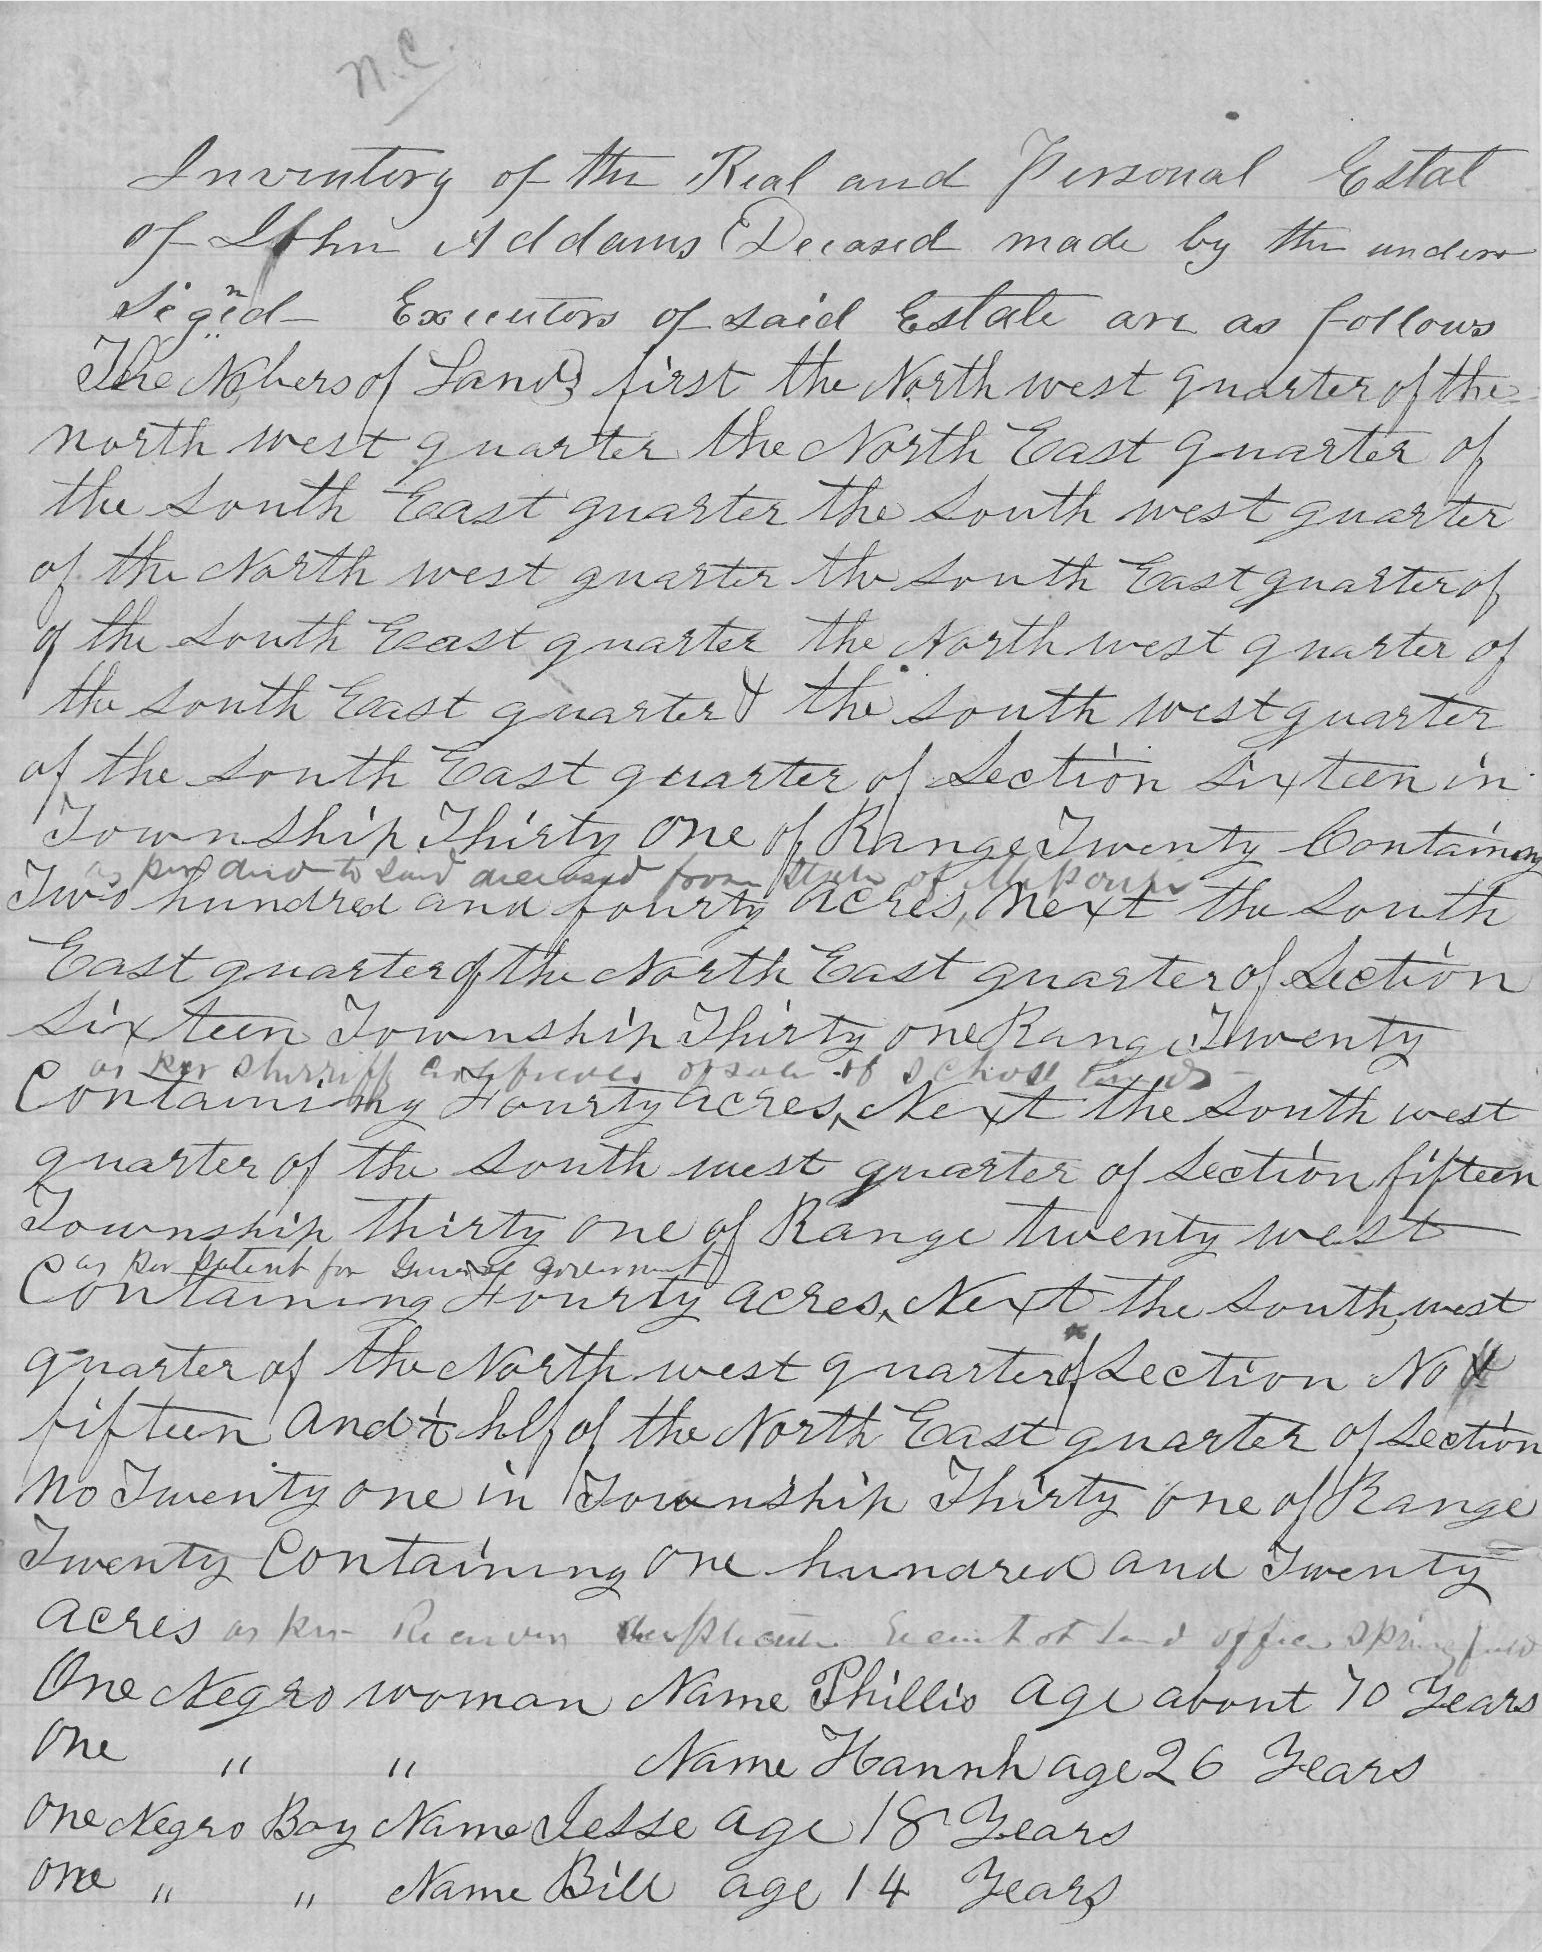 N.C.
Inventory of the Real and Personal Estat
of John Addams Decased made by the under
Signed Executors of said Estate are as follows
The Nobers of Lands first the North west quarter of the
north west quarter the North East quarter of
the South East quarter the South west quarter
of the North west quarter the South East quarter of
of the South East quarter the North west quarter of
the South East quarter & the South west quarter
of the South East quarter of Section Sixteen in
Township Thirty one of Range Twenty Containing
as per deed to said deceased from State of Missouri
Two hundred and fourty acres, Next the South
East quarter of the North East quarter of Section
Sixteen Township Thirty one Range Twenty
as per Sherriff of sale of School Lands
Containing Fourty acres, Next the South west
quarter of the South west quarter of Section fifteen
Township thirty one of Range twenty west
as per patent for General government
Containing Fourty acres, Next the South, west
quarter of the North west quarter of Section No
fifteen and hlf of the North East quarter of Section
No Twenty one in Township Thirty one of Range
Twenty Containing one hundred and Twenty
acres as per Receivers duplicate Receipt of Land office Springfield
One Negro woman Name Phillis age about 70 Years
One " " Name Hannh age 26 Years
One Negro Boy Name Jesse age 18 Years
One " " Name Bill age 14 Years